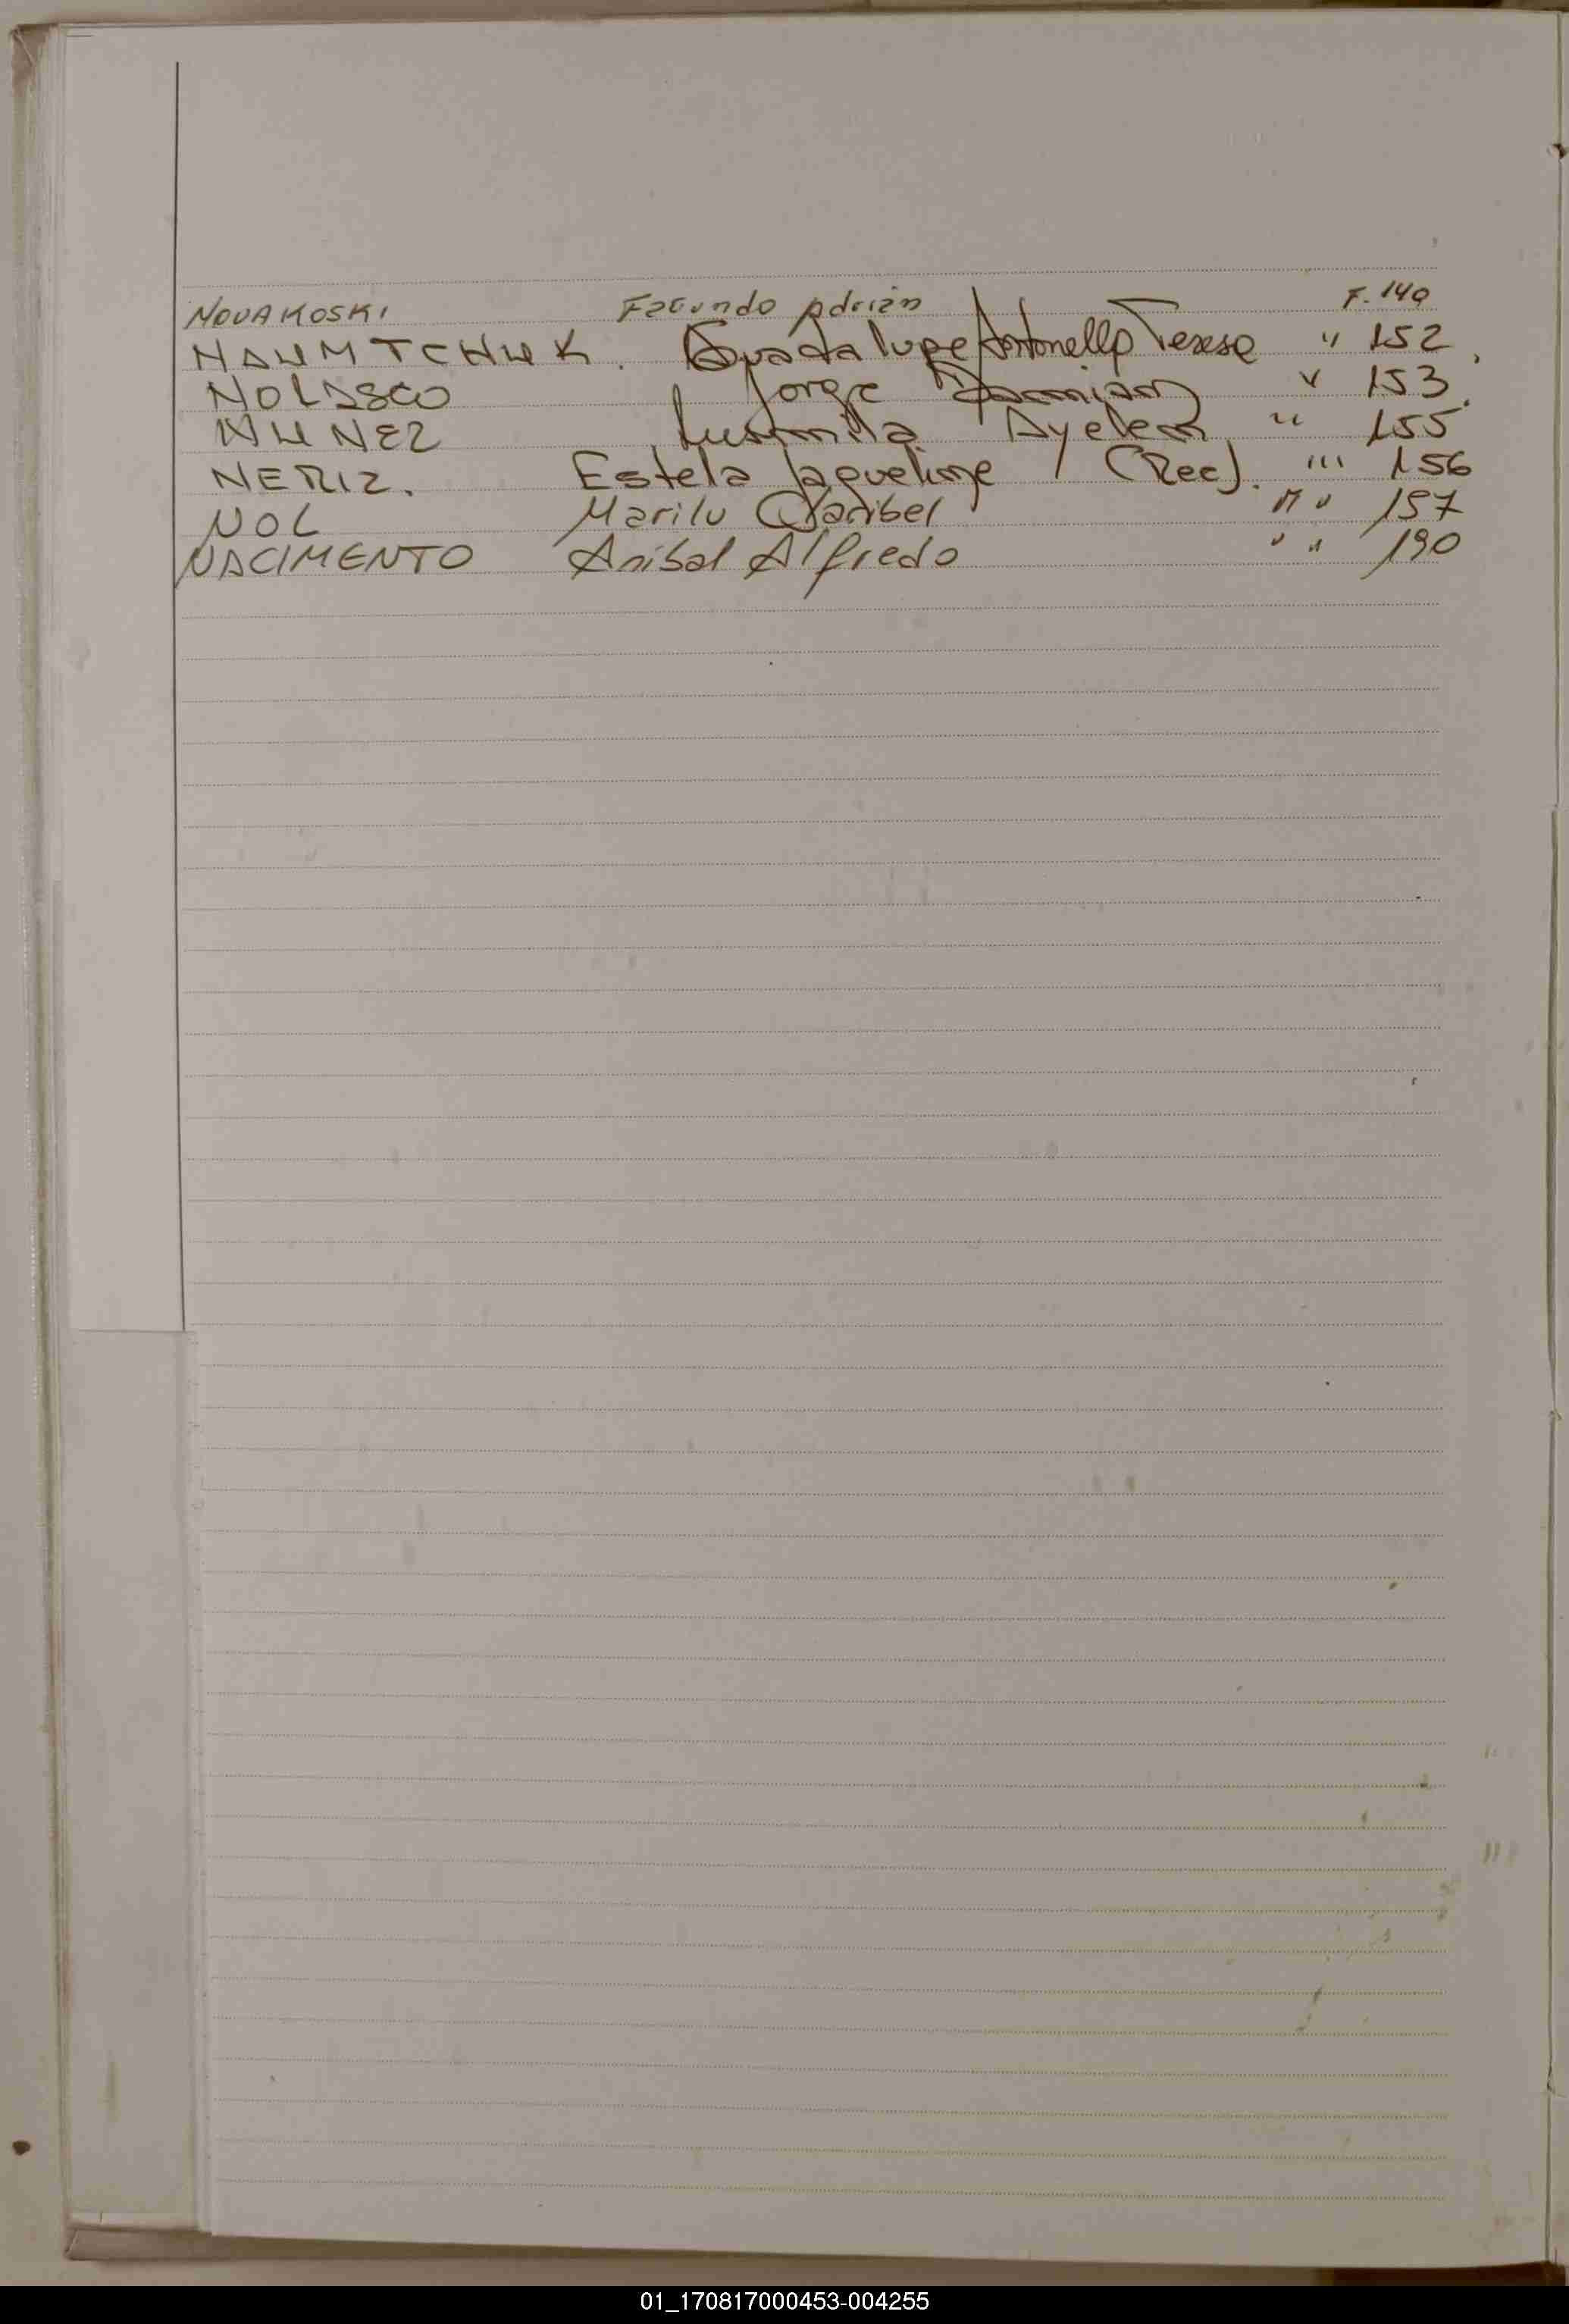 NOVAKOSKI Facundo Adrián F. 140
NAUMTCHUK. Guadalupe Antonella Teresa " 152
NOLASCO Jorge Damian " 153
NUNEZ Lusmila Ayelen " 155
NERIZ. Estela Jaqueline (Rec). "' 156
NOL Marilu Maribel " " 157
NACIMENTO Anibal Alfredo " " 190
01_170817000453-004255